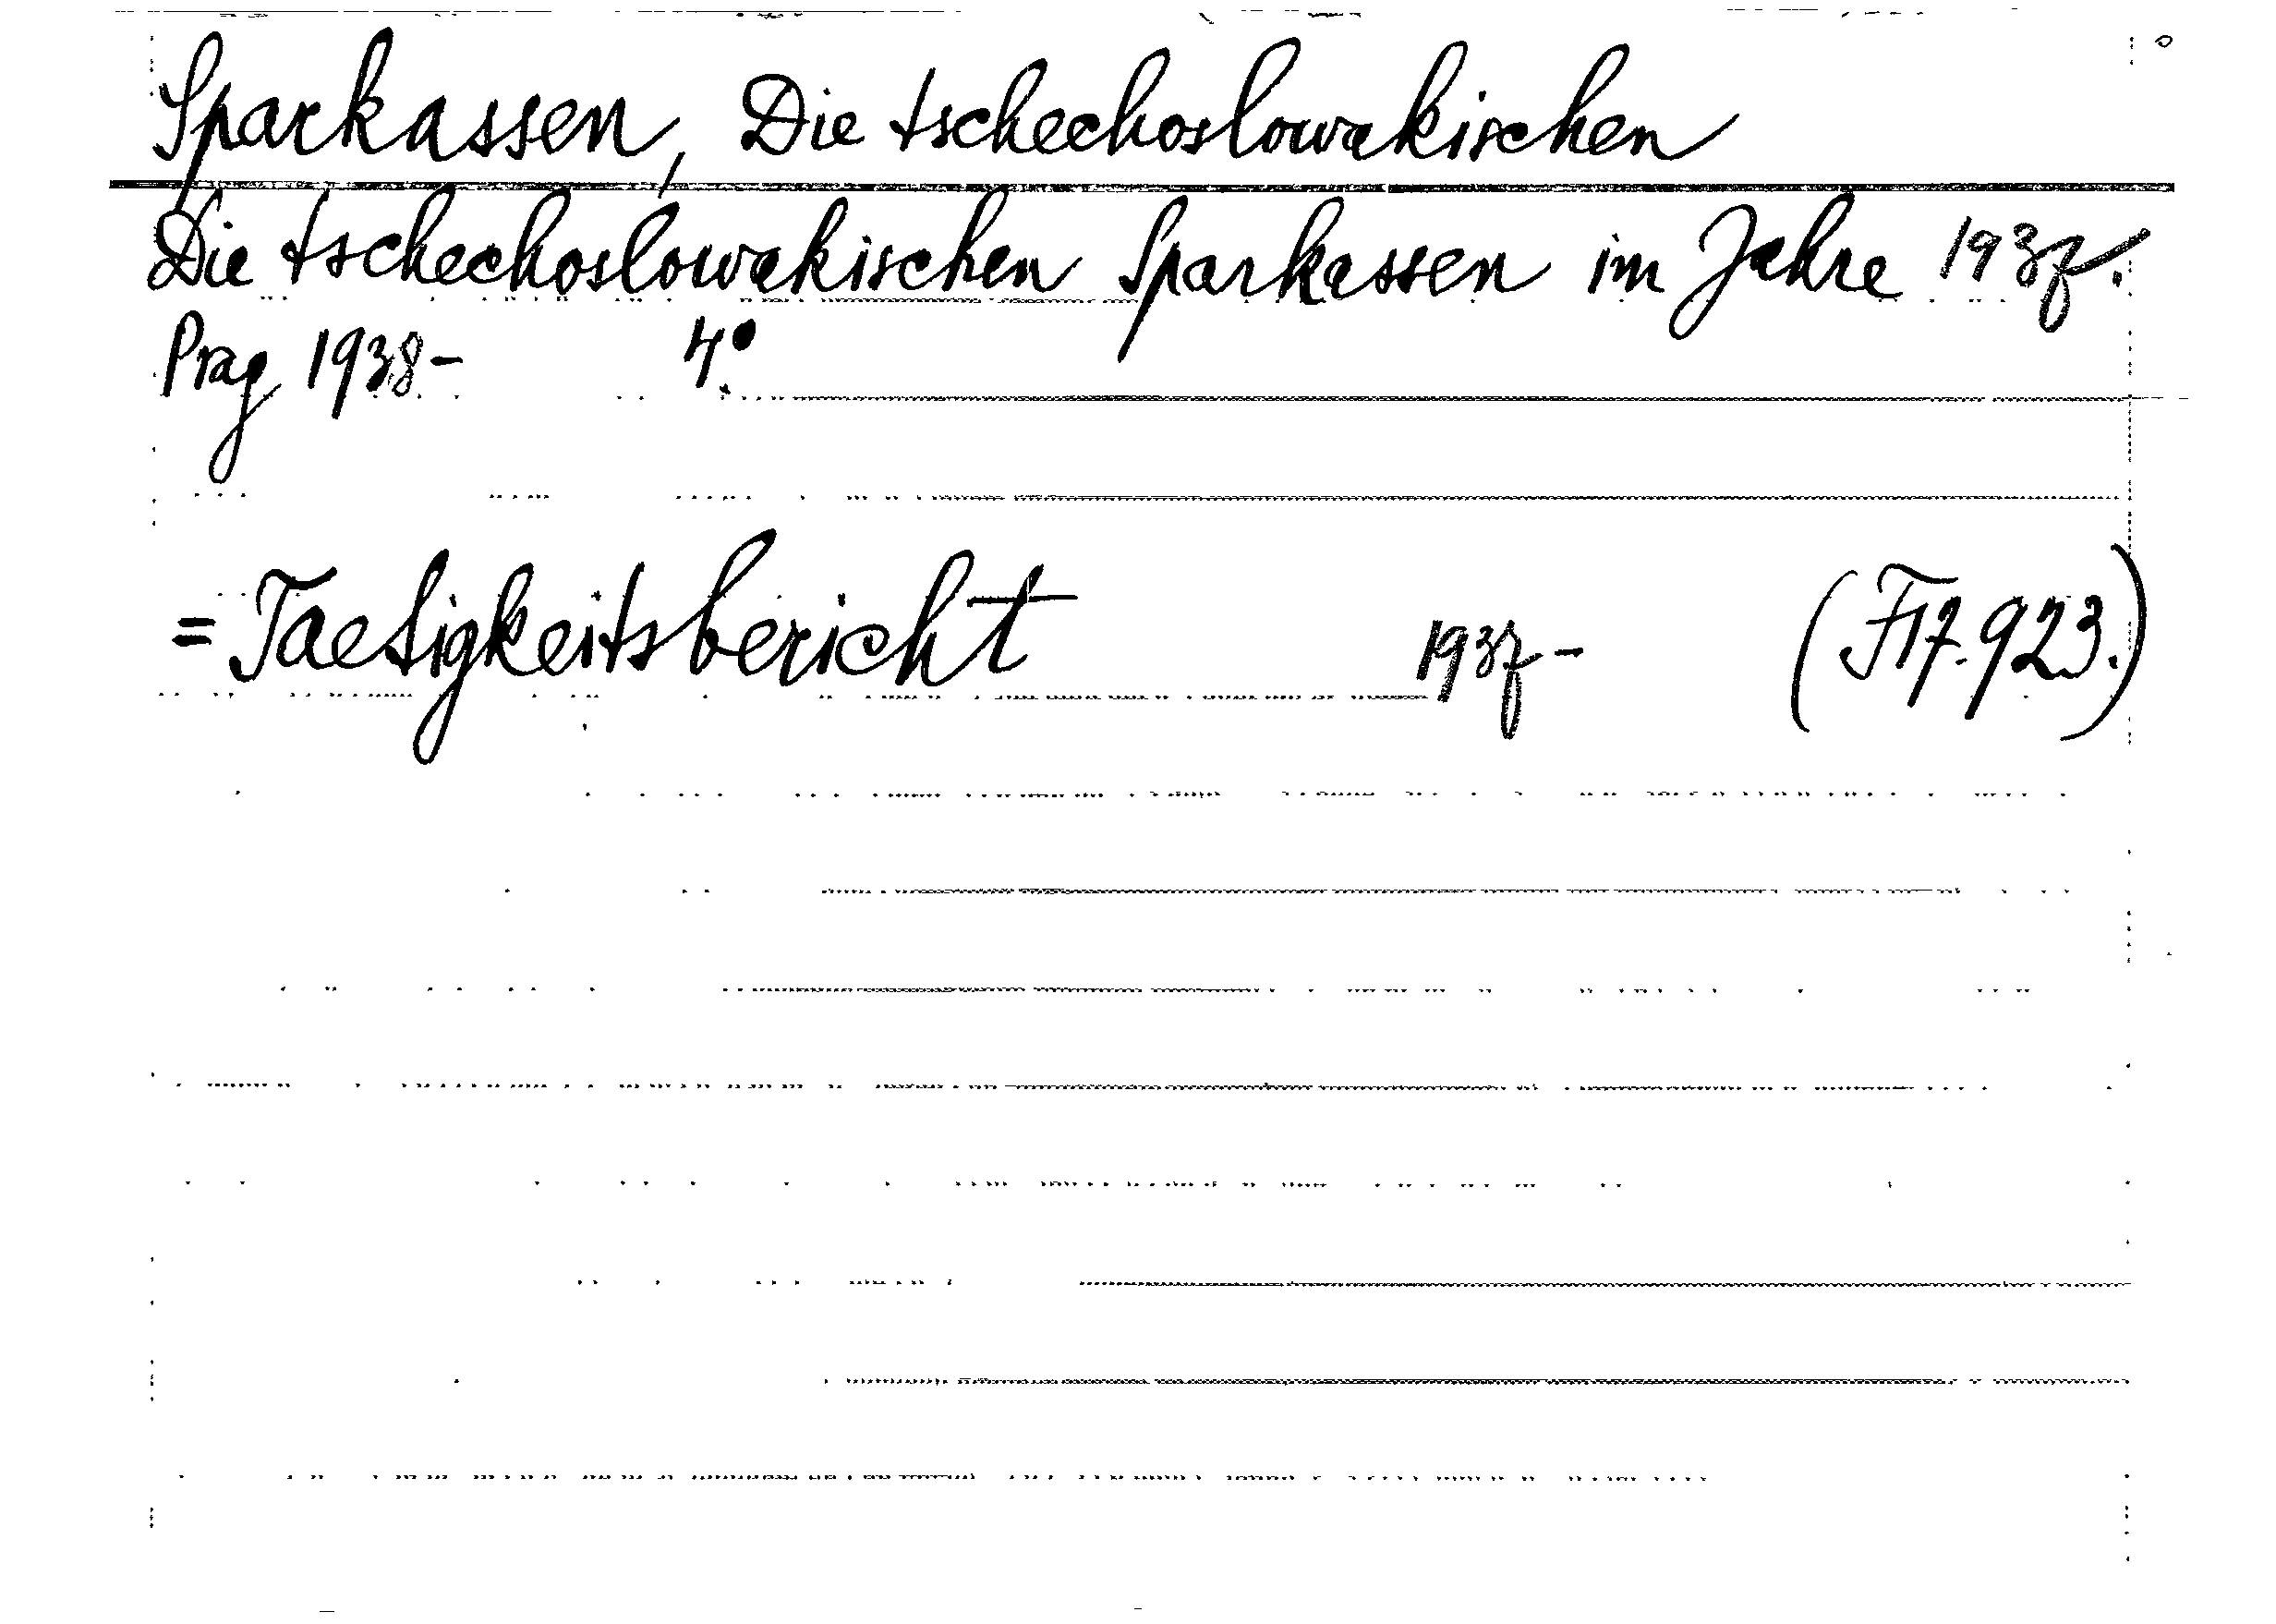 Sparkassen, Die tschechoslowakischen
Die tschechoslowakischen Sparkassen im Jahre 1937.
Prag 1938- 4°.
= Taetigkeitsbericht 1937- (F17.923.)